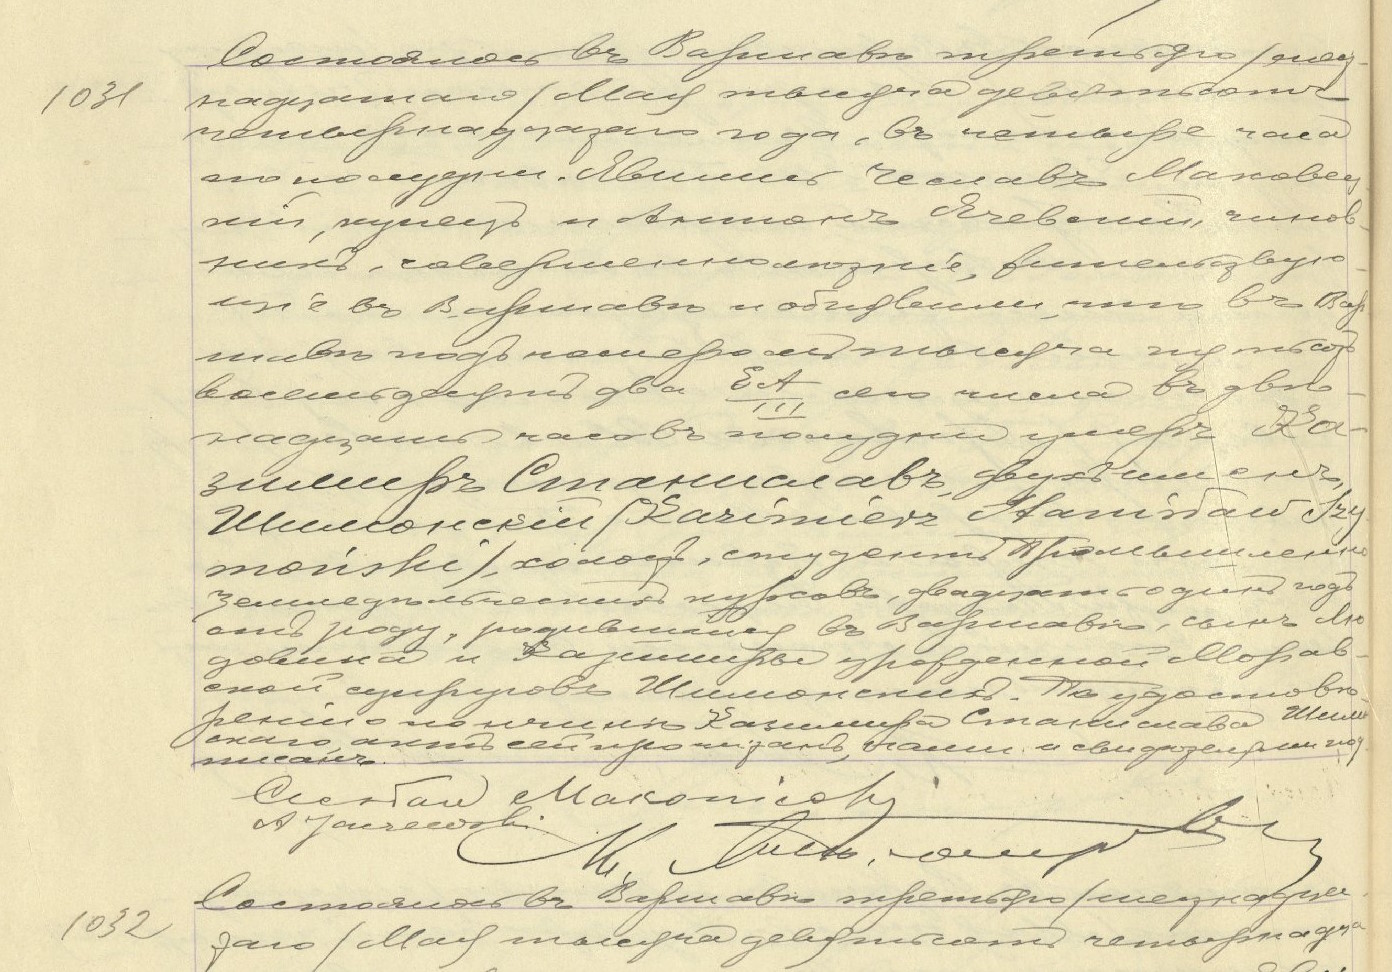 1031
Состоялось въ Варшавѣ третьяго /шест-
надцатаго/ Мая тысяча девятьсотъ
четырнадцатаго года, въ четыре часа
по полудни. Явились Чеславъ Маковец-
кій, купецъ и Антонъ Ячевскій, чинов-
никъ, совершеннолѣтніе, жительствую-
щіе въ Варшавѣ и объявили, что въ Вар-
шавѣ подъ номеромъ тысяча пятьсотъ
восемьдесятъ два ЕА/III сего числа въ двѣ-
надцать часовъ полудня умеръ Ка-
зимиръ Станиславъ, двухъ именъ,
Шимонскій /Kazimierz Stanisław Szy-
moński/, холостъ, студентъ Промышленно
Земледѣльческихъ курсовъ, двадцать одинъ годъ
отъ роду, родившійся въ Варшавѣ, сынъ Лю-
довика и Казимиры урожденной Морав-
ской, супруговъ Шимонскихъ. По удостовѣ-
реніи о кончинѣ Казимира Станислава Шимон-
скаго, актъ сей прочитанъ, нами и свидѣтелями под-
писанъ.
Czesław Makowiecki
A Jaczewski
1032
Состоялось въ Варшавѣ третьяго /шестнадца-
таго/ Мая тысяча девятьсотъ четырнадца